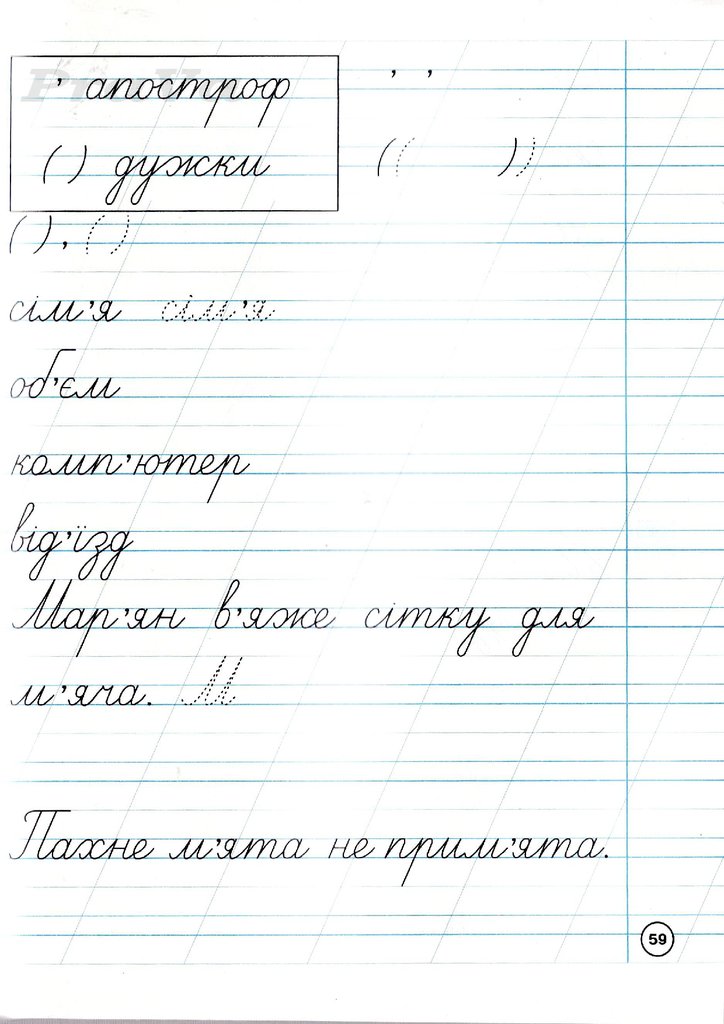 ’ апостроф ’ ’
( ) дужки ( ( ) )
( ) , ( )
сім’я сім’я
об’єм
комп’ютер
від’їзд
Мар’ян в’яже сітку для
м’яча. М
Пахне м’ята не прим’ята.
59